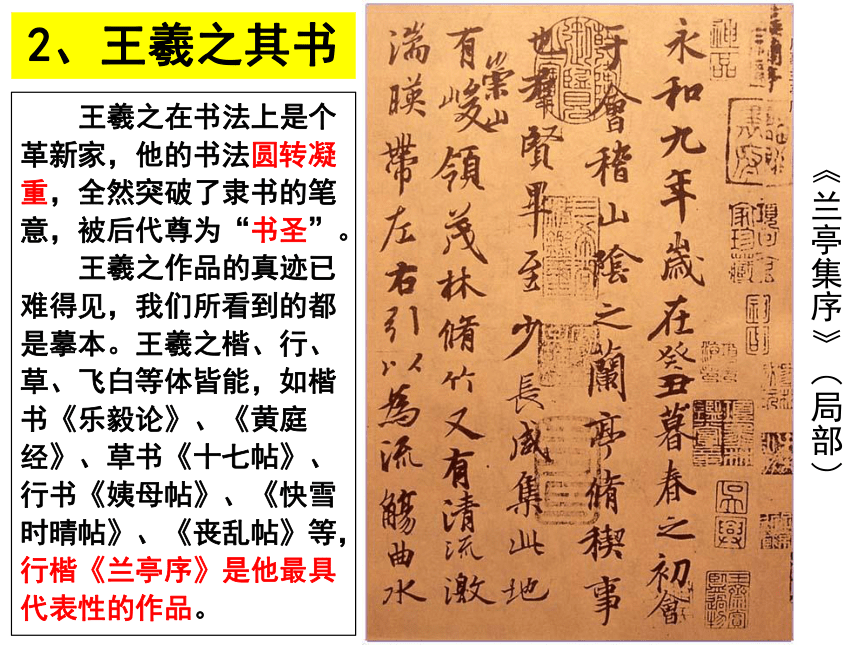 2、王羲之其书
王羲之在书法上是个
革新家，他的书法圆转凝
重，全然突破了隶书的笔
意，被后代尊为“书圣”。
王羲之作品的真迹已
难得见，我们所看到的都
是摹本。王羲之楷、行、
草、飞白等体皆能，如楷
书《乐毅论》、《黄庭
经》、草书《十七帖》、
行书《姨母帖》、《快雪
时晴帖》、《丧乱帖》等，
行楷《兰亭序》是他最具
代表性的作品。
永和九年歲在癸丑暮春之初會
于會稽山陰之蘭亭脩稧事
也羣賢畢至少長咸集此地
有崇山峻領茂林脩竹又有清流激
湍暎帶左右引以為流觴曲水
神品
《兰亭集序》（局部）